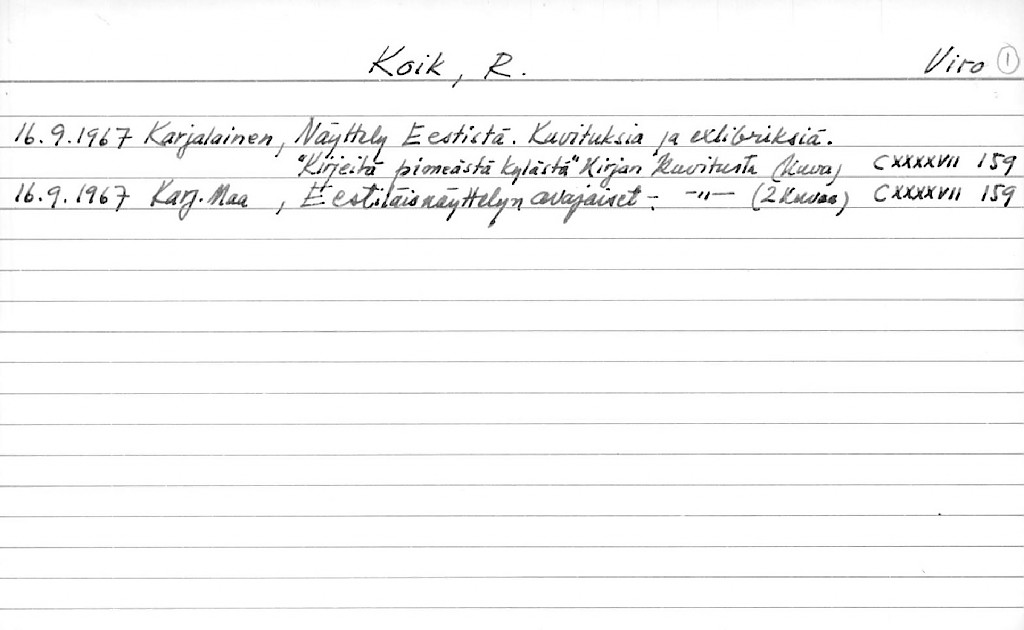 Koik, R. Viro 1
16.9.1967 Karjalainen, Näyttely Eestistä. Kuvituksia ja exlibriksiä.
"Kirjeitä pimeästä kylästä" Kirjan kuvitusta (kuva) CXXXXVII 159
16.9.1967 Karj. Maa , Eestiläisnäyttelyn avajaiset - -"- (2 kuvaa) CXXXXVII 159